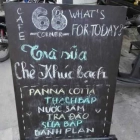 CAFE 66 CORNER
WHAT'S
FOR TODAY?
Trà sữa
Chè Khúc bạch
PANNA COTTA
THẠCH BẮP
NƯỚC SÂM
TRÀ ĐÀO
SỮA BẮP
BÁNH FLAN